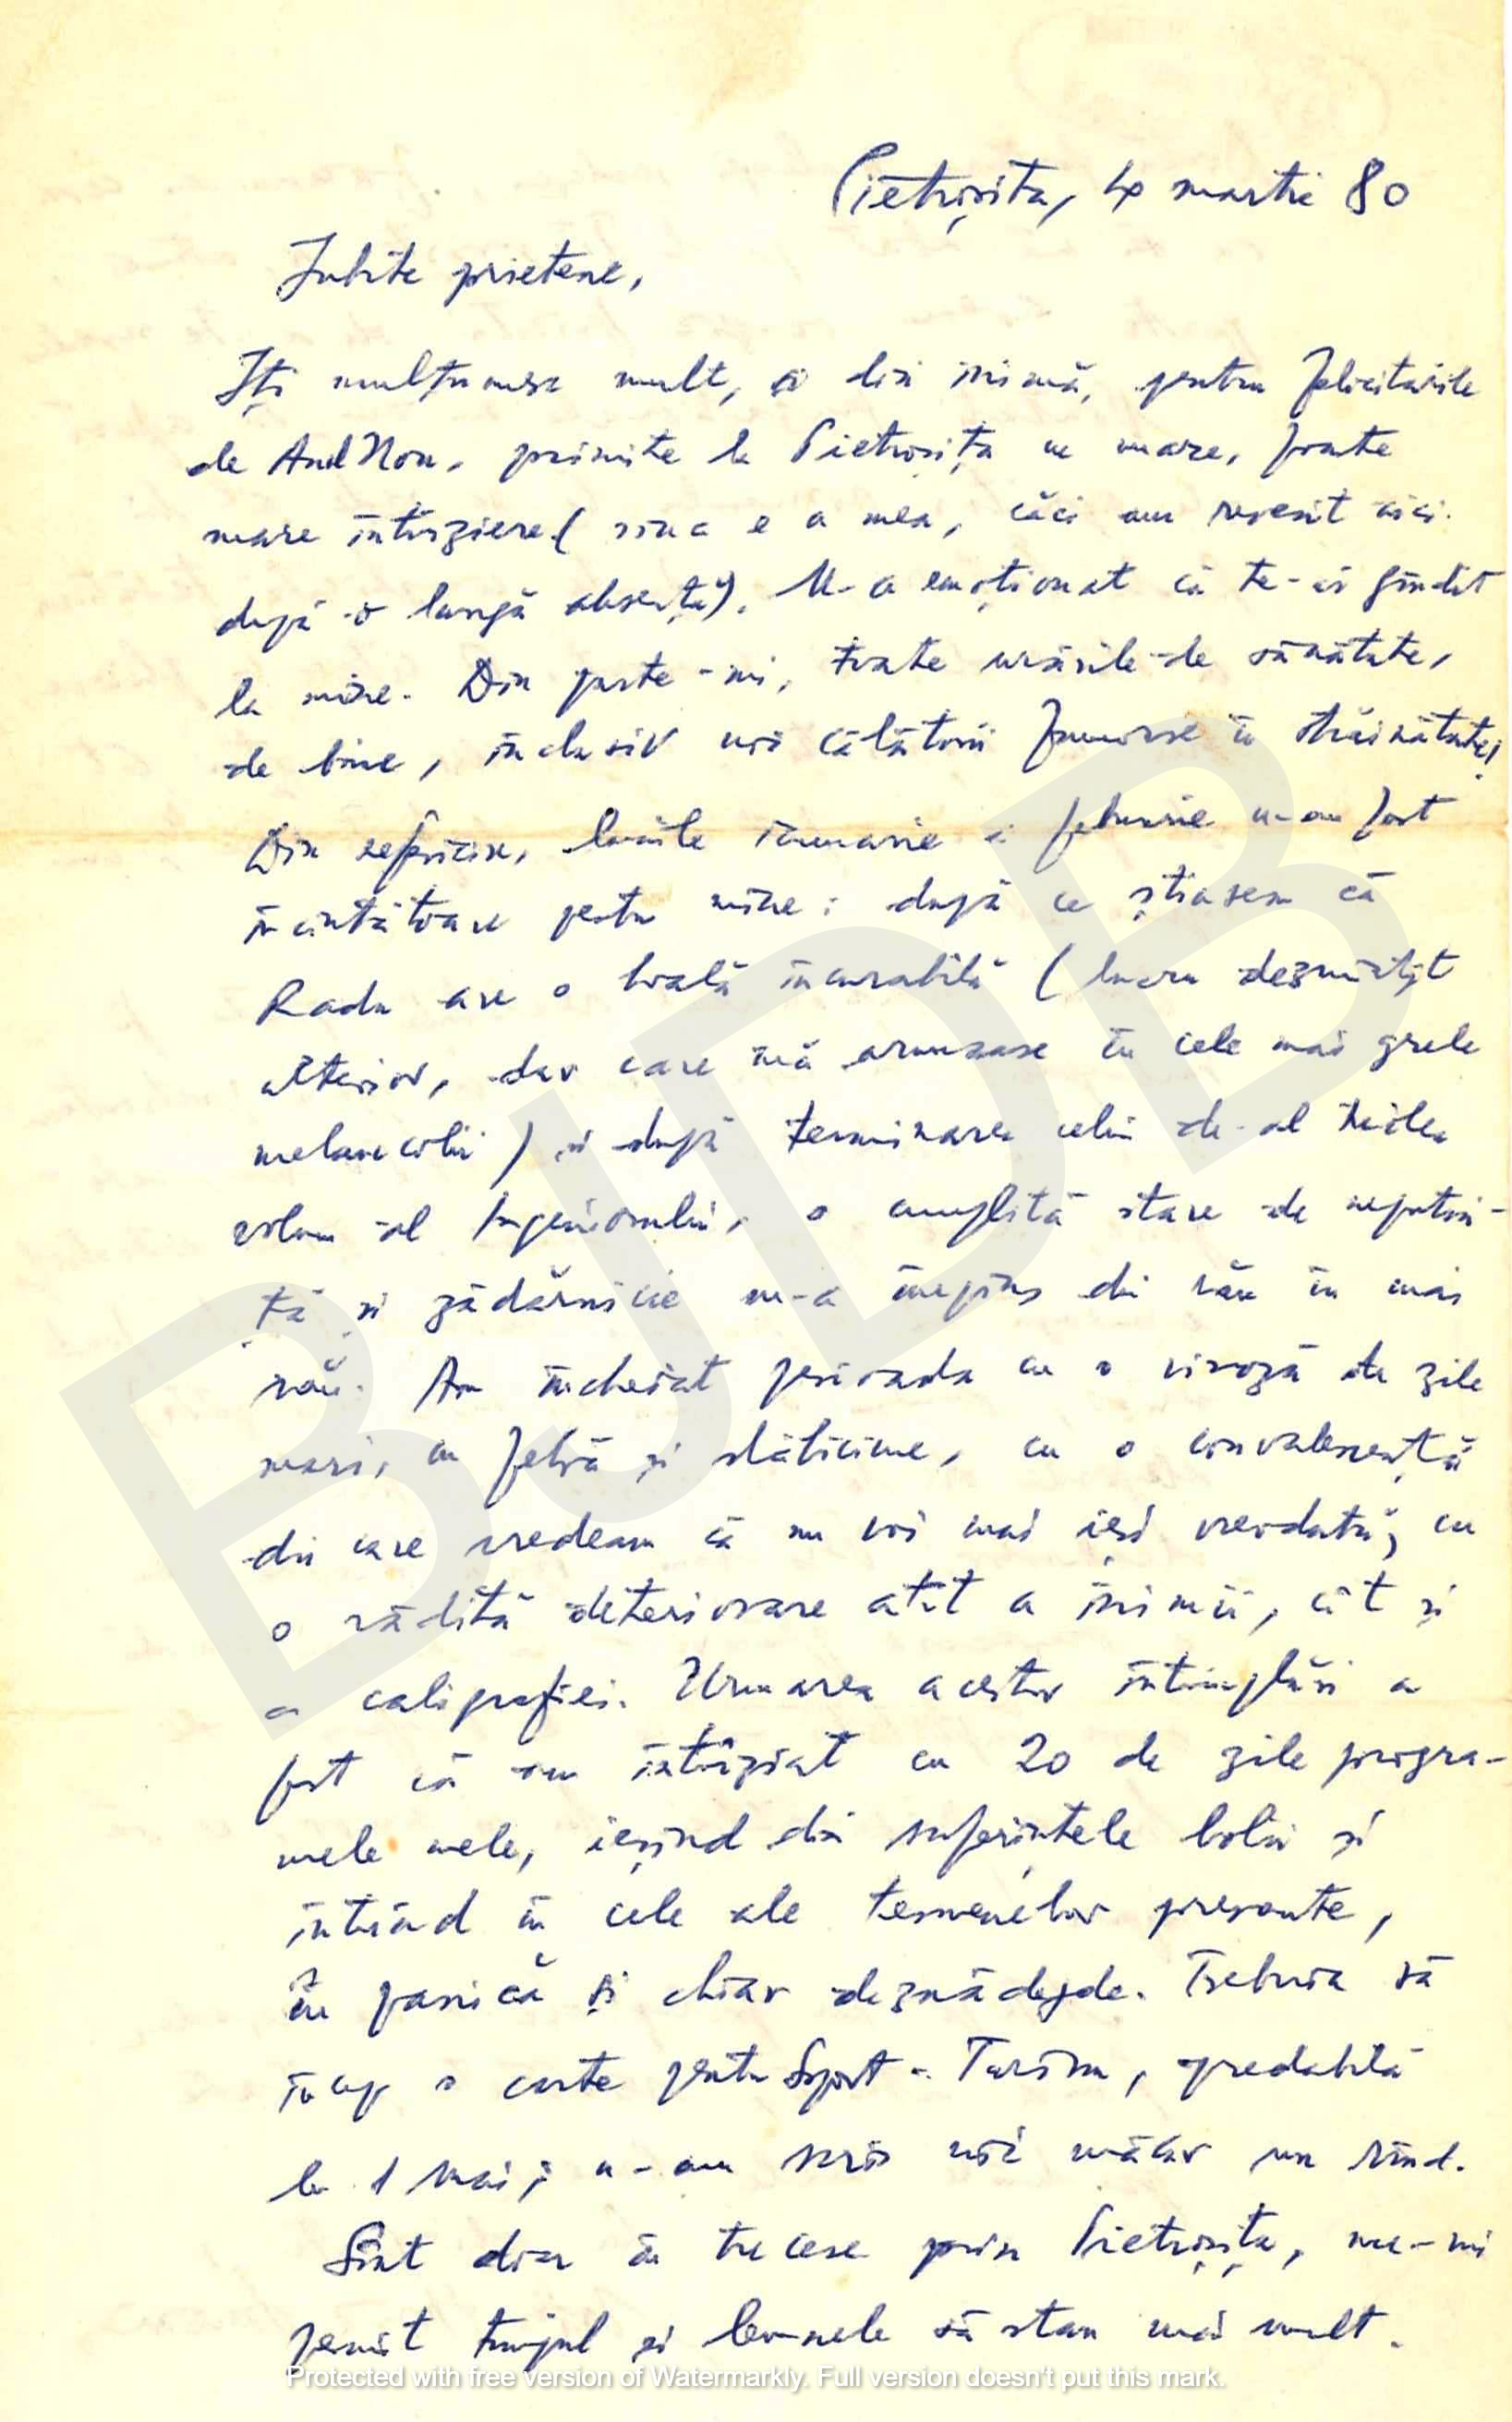 Pietroșița, 4 martie 80
Iubite prietene,
Îți mulțumesc mult, și din inimă, pentru felicitările
de Anul Nou, primite la Pietroșița cu mare, foarte
mare întîrziere (vina e a mea, căci am revenit aici
după o lungă absență). M-a emoționat că te-ai gîndit
la mine. Din parte-mi, toate urările de sănătate,
de bine, inclusiv noi călătorii frumoase în străinătate!
Din nefericire, lunile ianuarie și februarie n-au fost
încîntătoare pentru mine: după ce știusem că
Radu are o boală incurabilă (lucru dezmințit
ulterior, dar care mă aruncase în cele mai grele
melancolii) și după terminarea celui de-al treilea
volum al Ingeniosului, o cumplită stare de neputin-
ță și zădărnicie m-a împins din rău în mai
rău. Am încheiat perioada cu o viroză de zile
mari, cu febră și slăbiciune, cu o convalescență
din care credeam că nu voi mai ieși vreodată, cu
o vădită deteriorare atît a inimii, cît și
a caligrafiei. Urmarea acestor întîmplări a
fost că am întîrziat cu 20 de zile progra-
mele mele, ieșind din suferințele bolii și
intrînd în cele ale termenelor presante,
în panică și chiar deznădejde. Trebuia să
încep o carte pentru Sport-Turism, predabilă
la 1 mai; n-am scris nici măcar un rînd.
Sînt doar în trecere prin Pietroșița, nu-mi
permit timpul și lemnele să stau mai mult.
BJDB
Protected with free version of Watermarkly. Full version doesn't put this mark.